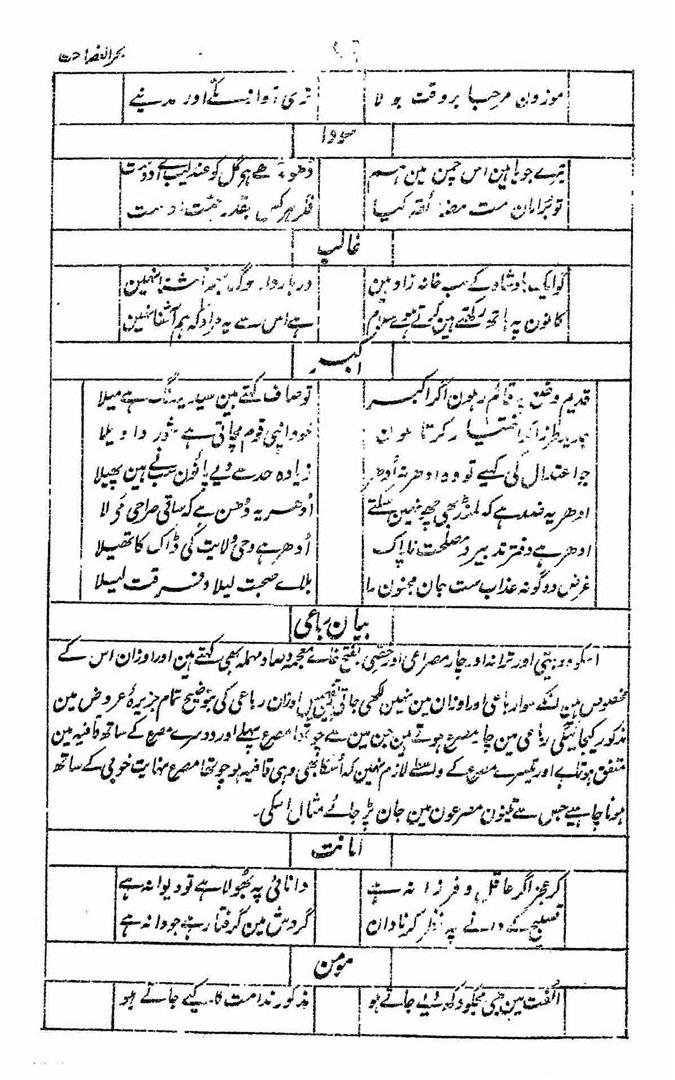 بحر الفصاحت
موزون مرحبا بروقت بولا تری آواز مکے اور مدینے
سودا
تیرے جویا ہین اس چمن مین ہم ڈھونڈھے ہو گل کو عندلیب اے دوست
تو بزاران ست فکر ہر کس بقدر ہمت اوست
غالب
گو ایک بادشاہ کے سب خانہ زاد ہین دربار دار لوگ بہم آشنا نہین
کانون پہ ہاتھ رکھتے ہین کرتے ہوے سلام ہے اس سے یہ مراد کہ ہم آشنا نہین
اکبر
قدیم وضع پہ قائم رہون اگر اکبر تو صاف کہتے ہین سید یہ رنگ ہے میلا
جدید طرز اگر اختیار کرتا ہون خود اپنی قوم مچاتی ہے شور واویلا
جو اعتدال کی کہیے تو وہ ادھر نہ اُدھر زیادہ حد سے دیے پاؤن سب نے ہین پھیلا
ادھر یہ ضد ہے کہ لمنڈ بھی چھو نہین سکتے اُدھر یہ دُھن ہے کہ ساقی صراحی مے لا
ادھر ہے دفتر تدبیر و مصلحت ناپاک اُدھر ہے وحی ولایت کی ڈاک کا تھیلا
غرض دو گونہ عذاب ست جان مجنون را بلاے صحبت لیلا و فرقت لیلا
بیان رباعی
اسکو دو بیتی اور ترانہ اور چار مصراعی اور خصّی بفتح خاے معجمہ و صاد مہملہ بھی کہتے ہین اور اوزان اس کے
مخصوص ہین انکے سوا رباعی اور اوزان مین نہین لکھی جاتی اوزان رباعی کی توضیح تمام جزیرۂ عروض مین
مذکور کیجائیگی رباعی مین چار مصرع ہوتے ہین جن مین سے چوتھا مصرع پہلے اور دوسرے مصرع کے ساتھ قافیہ مین
متفق ہوتا ہے اور تیسرے مصرع کے واسطے لازم نہین کہ اُسکا بھی وہی قافیہ ہو چوتھا مصرع نہایت خوبی کے ساتھ
ہونا چاہیے جس سے تینون مصرعون مین جان پڑ جائے مثال اسکی۔
امانت
کر عجز اگر عاقل و فرزانہ ہے دانائی پہ بھولا ہے تو دیوانہ ہے
تسبیح کے دانے پہ نظر کر نادان گردش مین گرفتار ہے جو دانہ ہے
مومن
الفت مین بھی مجکو دکھ دیے جاتے ہو مذکور ندامت کا کیے جاتے ہو